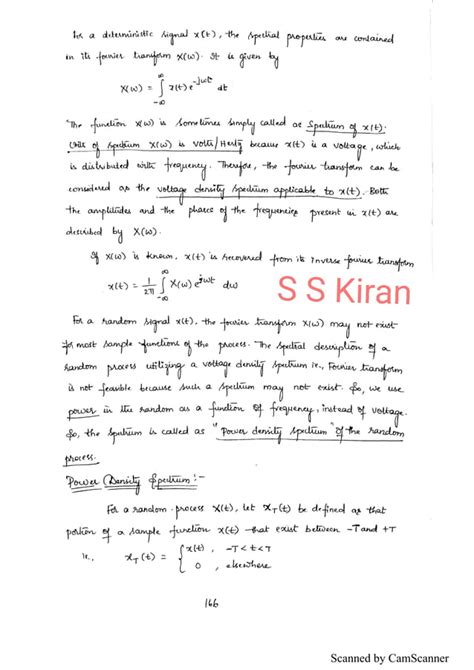 For a deterministic signal x(t), the spectral properties are contained
in its fourier transform X(ω). It is given by
X(ω) = ∫_{-∞}^{∞} x(t) e^{-jωt} dt
The function X(ω) is sometimes simply called as Spectrum of x(t).
Units of spectrum X(ω) is volts/Hertz because x(t) is a voltage, which
is distributed with frequency. Therefore, the fourier transform can be
considered as the voltage density spectrum applicable to x(t). Both
the amplitudes and the phases of the frequencies present in x(t) are
described by X(ω).
If X(ω) is known, x(t) is recovered from its inverse fourier transform
x(t) = 1/2π ∫_{-∞}^{∞} X(ω) e^{jωt} dω
S S Kiran
For a random signal x(t), the fourier transform X(ω) may not exist
for most sample functions of the process. The spectral description of a
random process utilizing a voltage density spectrum i.e., Fourier transform
is not feasible because such a spectrum may not exist. So, we use
power in the random as a function of frequency, instead of voltage.
So, the spectrum is called as "Power density spectrum" of the random
process.
Power Density Spectrum:-
For a random process X(t), let x_T(t) be defined as that
portion of a sample function x(t) that exist between -T and +T
i.e., x_T(t) = { x(t), -T<t<T
0, elsewhere
166
Scanned by CamScanner